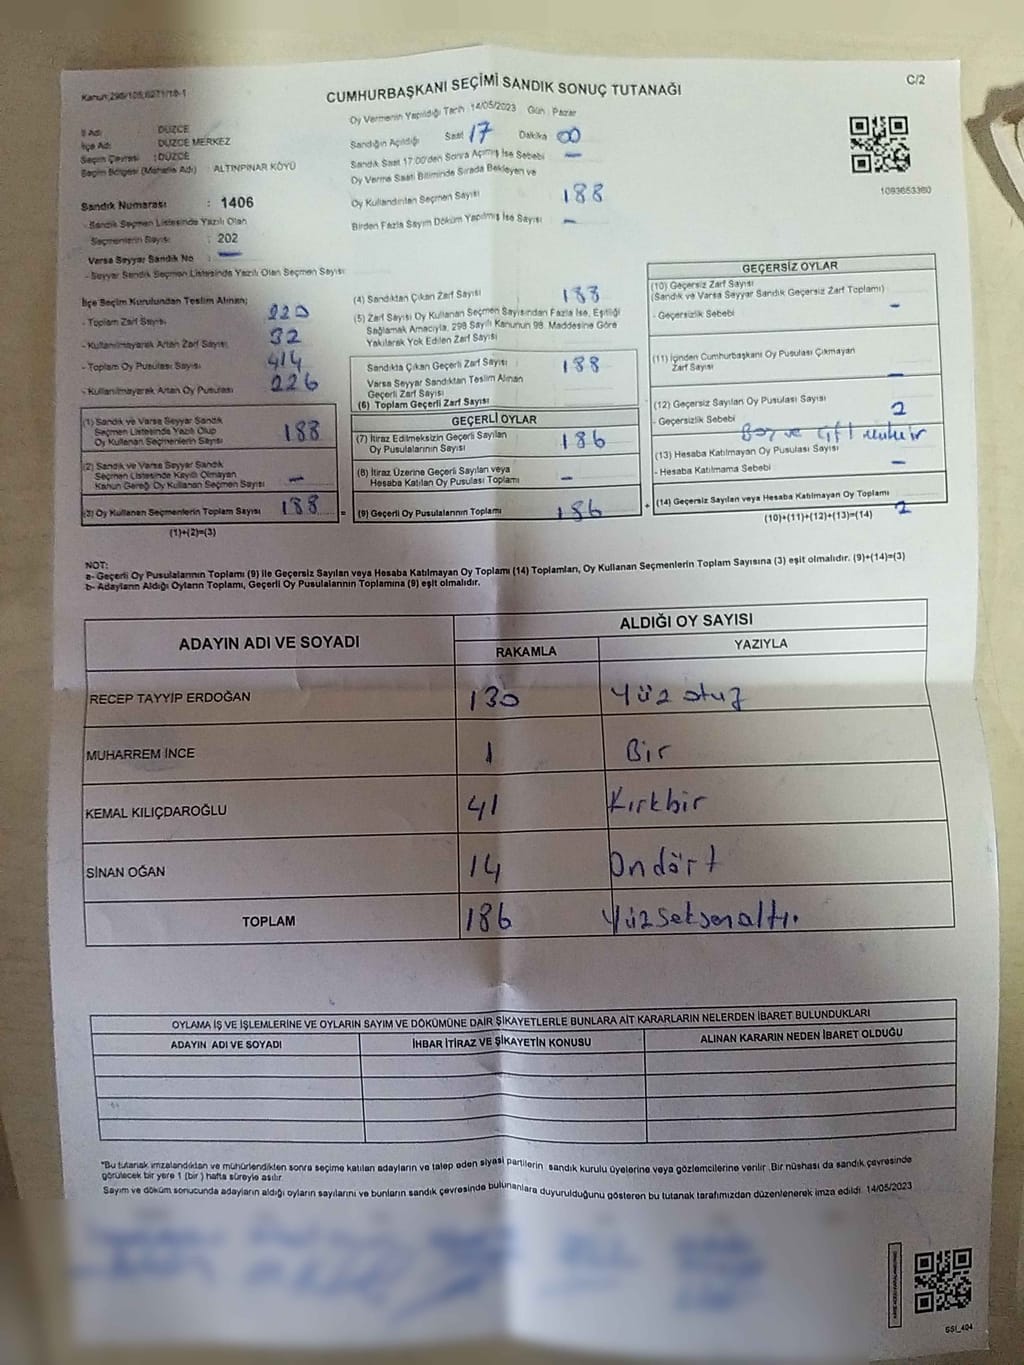 Kanun:298/105,6271/18-1
CUMHURBAŞKANI SEÇİMİ SANDIK SONUÇ TUTANAĞI
C/2
Oy Vermenin Yapıldığı Tarih 14/05/2023 Gün : Pazar
İl Adı : DÜZCE
İlçe Adı : DÜZCE MERKEZ
Seçim Çevresi : DÜZCE
Seçim Bölgesi (Mahalle Adı) : ALTINPINAR KÖYÜ
Sandık Numarası : 1406
- Sandık Seçmen Listesinde Yazılı Olan
Seçmenlerin Sayısı : 202
Varsa Seyyar Sandık No —
- Seyyar Sandık Seçmen Listesinde Yazılı Olan Seçmen Sayısı
Sandığın Açıldığı Saat 17 Dakika 00
Sandık Saat 17:00'den Sonra Açılmış İse Sebebi —
Oy Verme Saati Bitiminde Sırada Bekleyen ve
Oy Kullandırılan Seçmen Sayısı 188
Birden Fazla Sayım Döküm Yapılmış İse Sayısı —
1093653360
İlçe Seçim Kurulundan Teslim Alınan;
- Toplam Zarf Sayısı 220
- Kullanılmayarak Artan Zarf Sayısı 32
- Toplam Oy Pusulası Sayısı 414
- Kullanılmayarak Artan Oy Pusulası 226
(1) Sandık ve Varsa Seyyar Sandık
Seçmen Listesinde Yazılı Olup
Oy Kullanan Seçmenlerin Sayısı 188
(2) Sandık ve Varsa Seyyar Sandık
Seçmen Listesinde Kayıtlı Olmayan
Kanun Gereği Oy Kullanan Seçmen Sayısı —
(3) Oy Kullanan Seçmenlerin Toplam Sayısı 188 =
(1)+(2)=(3)
(4) Sandıktan Çıkan Zarf Sayısı 188
(5) Zarf Sayısı Oy Kullanan Seçmen Sayısından Fazla İse, Eşitliği
Sağlamak Amacıyla, 298 Sayılı Kanunun 98. Maddesine Göre
Yakılarak Yok Edilen Zarf Sayısı
Sandıkta Çıkan Geçerli Zarf Sayısı 188
Varsa Seyyar Sandıktan Teslim Alınan
Geçerli Zarf Sayısı
(6) Toplam Geçerli Zarf Sayısı
GEÇERLİ OYLAR
(7) İtiraz Edilmeksizin Geçerli Sayılan
Oy Pusulasının Sayısı 186
(8) İtiraz Üzerine Geçerli Sayılan veya
Hesaba Katılan Oy Pusulası Toplamı —
(9) Geçerli Oy Pusulalarının Toplamı 186 +
GEÇERSİZ OYLAR
(10) Geçersiz Zarf Sayısı
(Sandık ve Varsa Seyyar Sandık Geçersiz Zarf Toplamı)
- Geçersizlik Sebebi —
(11) İçinden Cumhurbaşkanı Oy Pusulası Çıkmayan
Zarf Sayısı —
(12) Geçersiz Sayılan Oy Pusulası Sayısı 2
- Geçersizlik Sebebi Boş ve çift mühür
(13) Hesaba Katılmayan Oy Pusulası Sayısı
- Hesaba Katılmama Sebebi —
(14) Geçersiz Sayılan veya Hesaba Katılmayan Oy Toplamı 2
(10)+(11)+(12)+(13)=(14)
NOT:
a- Geçerli Oy Pusulalarının Toplamı (9) ile Geçersiz Sayılan veya Hesaba Katılmayan Oy Toplamı (14) Toplamları, Oy Kullanan Seçmenlerin Toplam Sayısına (3) eşit olmalıdır. (9)+(14)=(3)
b- Adayların Aldığı Oyların Toplamı, Geçerli Oy Pusulalarının Toplamına (9) eşit olmalıdır.
ADAYIN ADI VE SOYADI
ALDIĞI OY SAYISI
RAKAMLA YAZIYLA
RECEP TAYYİP ERDOĞAN 130 Yüz otuz
MUHARREM İNCE 1 Bir
KEMAL KILIÇDAROĞLU 41 Kırkbir
SİNAN OĞAN 14 Ondört
TOPLAM 186 Yüzseksenaltı.
OYLAMA İŞ VE İŞLEMLERİNE VE OYLARIN SAYIM VE DÖKÜMÜNE DAİR ŞİKAYETLERLE BUNLARA AİT KARARLARIN NELERDEN İBARET BULUNDUKLARI
ADAYIN ADI VE SOYADI İHBAR İTİRAZ VE ŞİKAYETİN KONUSU ALINAN KARARIN NEDEN İBARET OLDUĞU
*Bu tutanak imzalandıktan ve mühürlendikten sonra seçime katılan adayların ve talep eden siyasi partilerin sandık kurulu üyelerine veya gözlemcilerine verilir. Bir nüshası da sandık çevresinde
görülecek bir yere 1 (bir) hafta süreyle asılır.
Sayım ve döküm sonucunda adayların aldığı oyların sayılarını ve bunların sandık çevresinde bulunanlara duyurulduğunu gösteren bu tutanak tarafımızdan düzenlenerek imza edildi. 14/05/2023